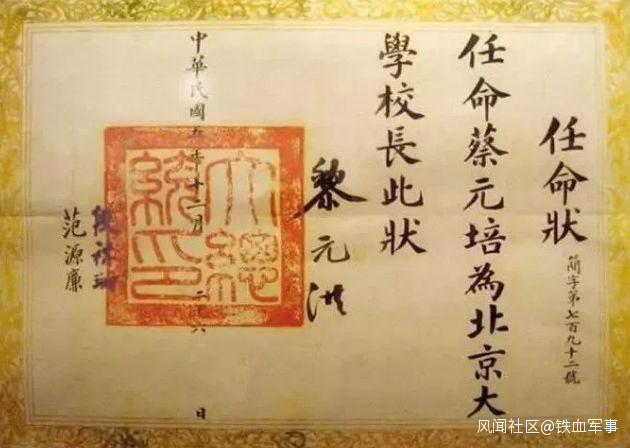 任命狀
簡字第七百九十二號
任命蔡元培為北京大
學校長此狀
大總
統印
黎元洪
中華民國五年十二月二十六日
段祺瑞
范源廉
风闻社区@铁血军事